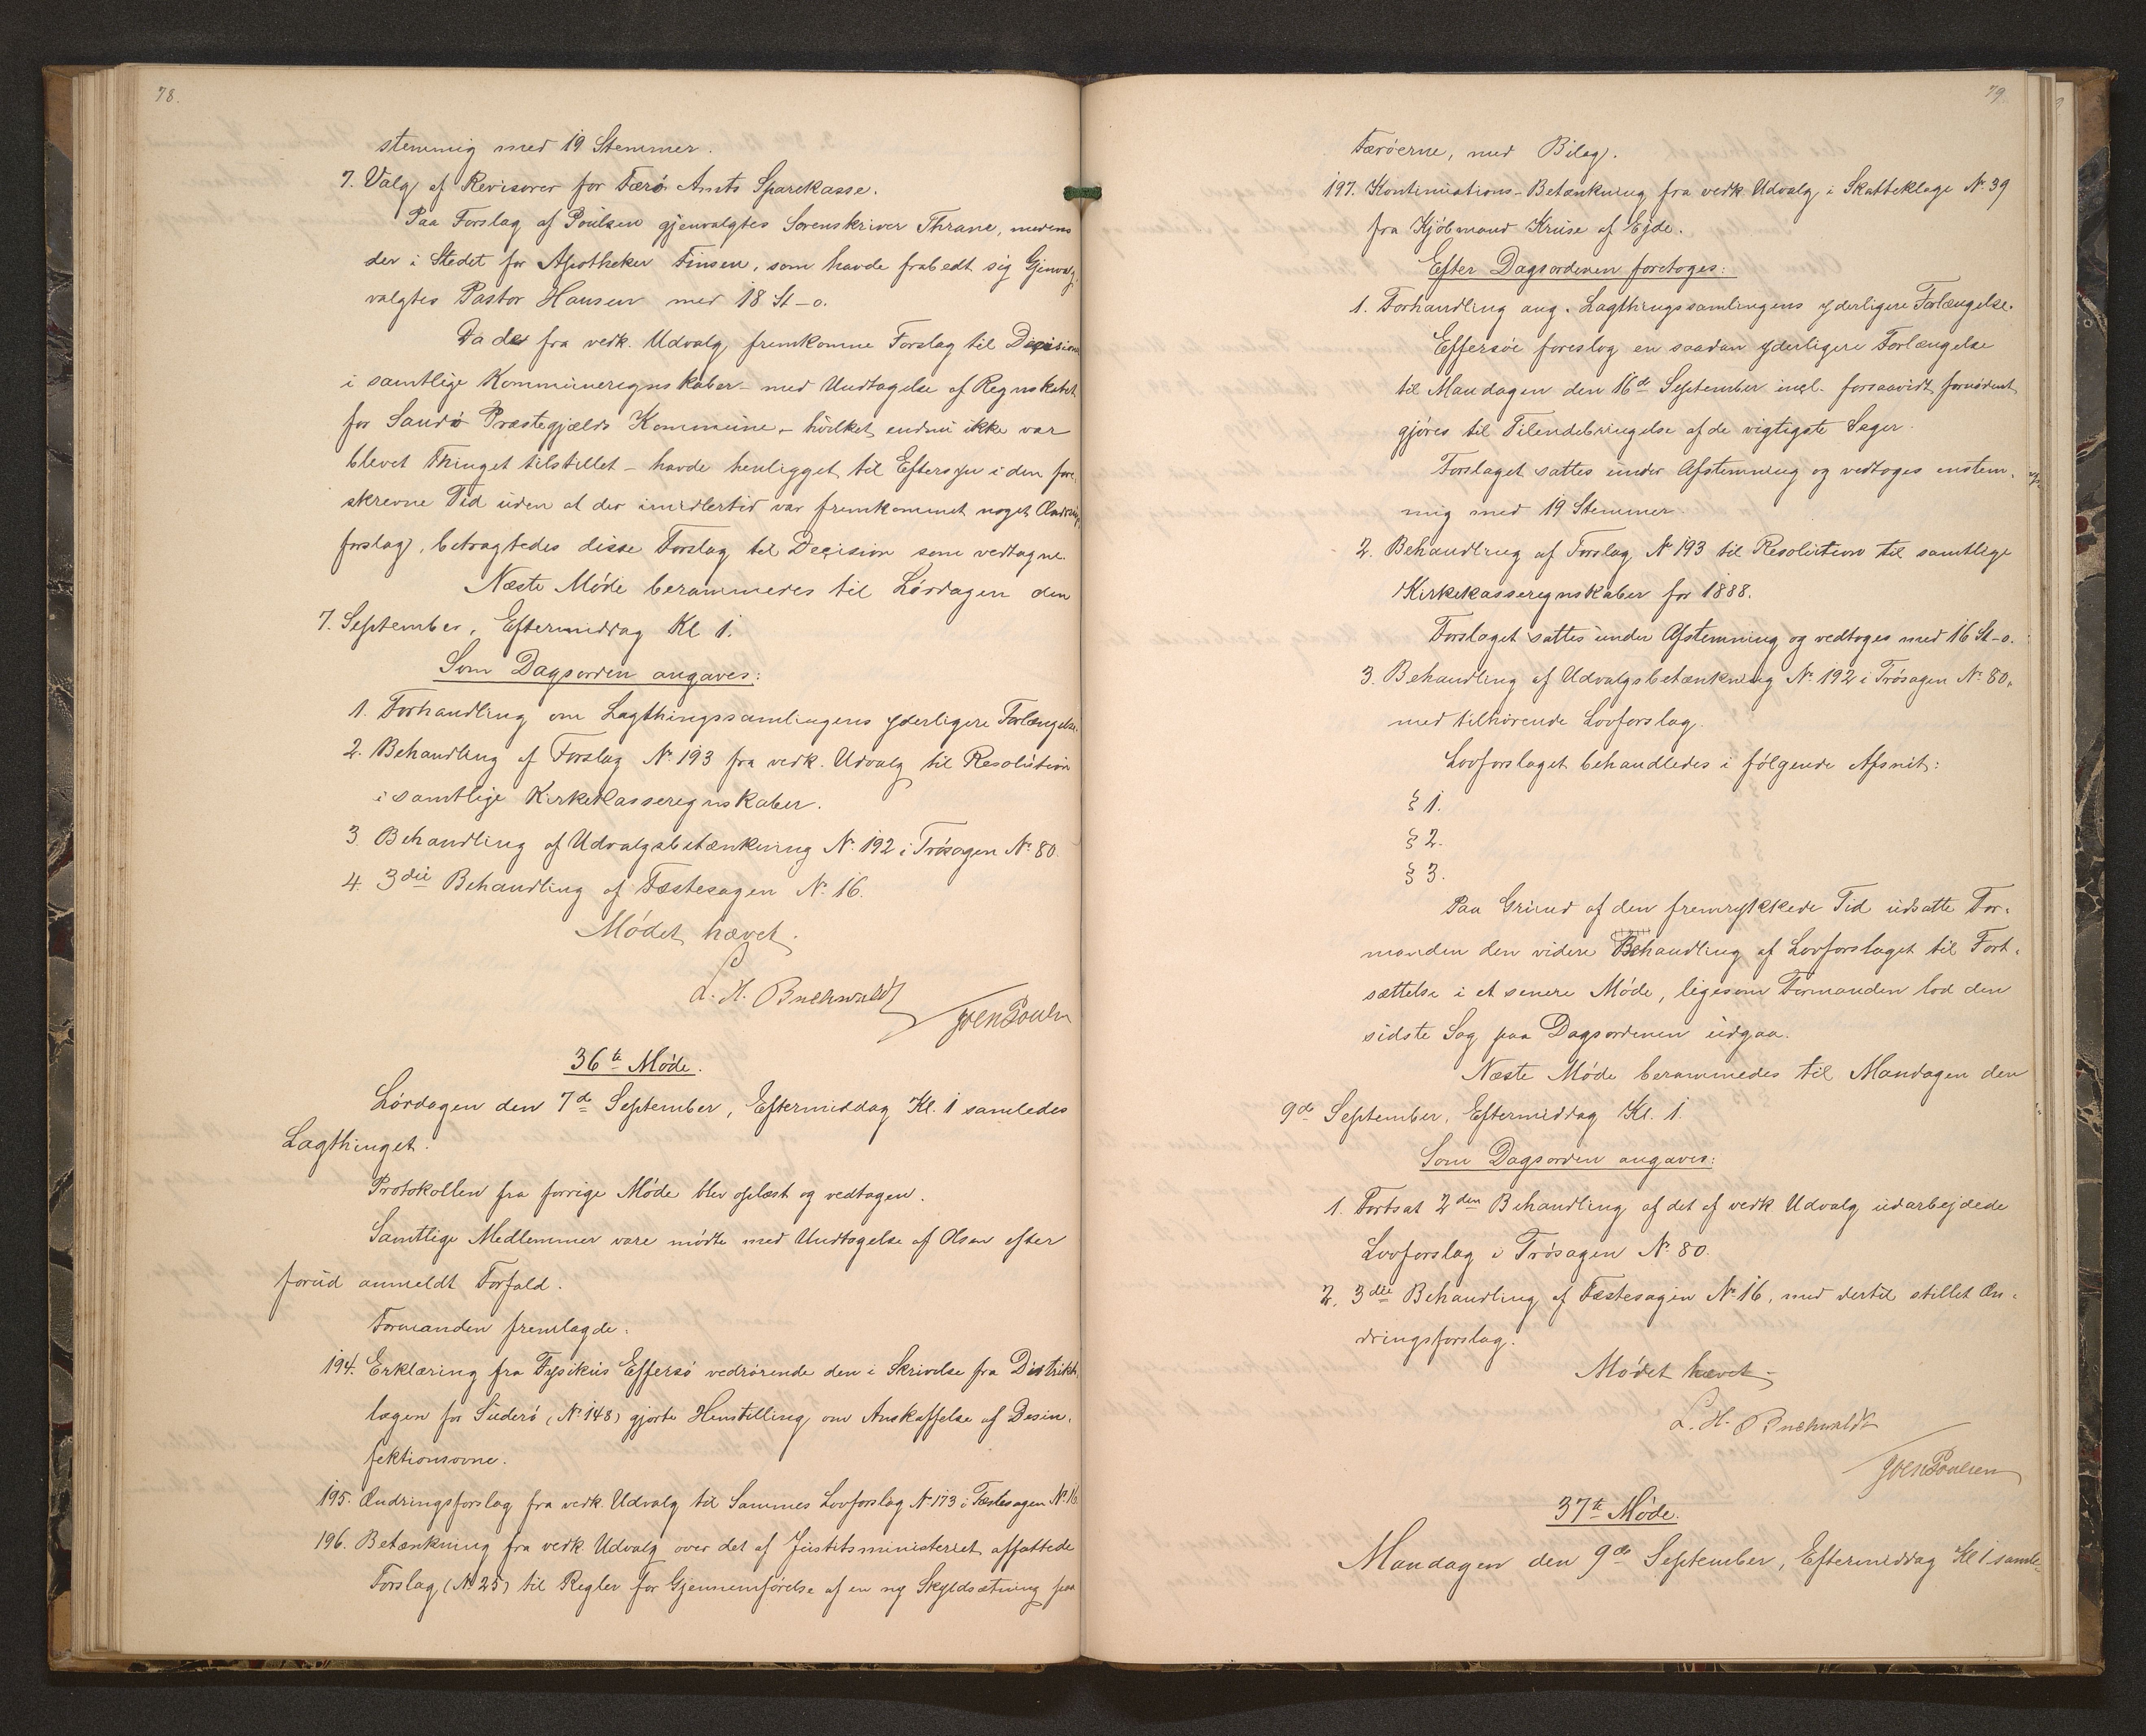 78.
stemmig med 19 Stemmer.
7. Valg af Revisorer for Færø Amts Sparekasse.
Paa Forslag af Poulsen gjenvalgtes Sorenskriver Thrane, medens
der i Stedet for Apotheker Finsen, som havde frabedt sig Gjenvalg,
valgtes Pastor Hansen med 18 St-o.
Da de fra vedk. Udvalg fremkomne Forslag til Decision
i samtlige Kommuneregnskaber - med Undtagelse af Regnskabet
for Sandø Præstegjælds Kommune, - hvilket endnu ikke var
blevet Thinget tilstillet - havde henligget til Eftersyn i den fore-
skrevne Tid uden at der imidlertid var fremkommet noget Ændrings-
forslag, betragtedes disse Forslag til Decision som vedtagne.
Næste Møde berammedes til Lørdagen den
7. September, Eftermiddag Kl 1.
Som Dagsorden angaves:
1. Forhandling om Lagthingssamlingens yderligere Forlængelse.
2. Behandling af Forslag No 193 fra vedk. Udvalg til Resolution
i samtlige Kirkekasseregnskaber.
3. Behandling af Udvalgsbetænkning No 192 i Trøsagen No 80.
4. 3die Behandling af Fæstesagen No 16.
Mødet hævet.
L. H. Buchwaldt
36te Møde.
Lørdagen den 7de September, Eftermiddag Kl. 1 samledes
Lagthinget.
Protokollen fra forrige Møde blev oplæst og vedtagen.
Samtlige Medlemmer vare mødte med Undtagelse af Olsen efter
forud anmeldt Forfald.
Formanden fremlagde:
194. Erklæring fra Fysikus Effersø vedrørende den i Skrivelse fra Distrikts-
lægen for Suderø (No 148) gjorte Henstilling om Anskaffelse af Desin-
fektionsovne.
195. Ændringsforslag fra vedk. Udvalg til Sammes Lovforslag No 173 i Fæstesagen No 16.
196. Betænkning fra vedk Udvalg over det af Justitsministeriet affattede
Forslag (No 25) til Regler for Gjennemførelse af en ny Skyldsætning paa
79
Færøerne, med Bilag.
197. Kontinuations-Betænkning fra vedk Udvalg i Skatteklage No 39
fra Kjøbmand Kruse af Ejde.
Efter Dagsordenen foretoges:
1. Forhandling ang. Lagthingssamlingens yderligere Forlængelse.
Effersøe foreslog en saadan yderligere Forlængelse
til Mandagen den 16de September incl. forsaavidt fornødent
gjøres til Tilendebringelse af de vigtigste Sager.
Forslaget sattes under Afstemning og vedtoges enstem-
mig med 19 Stemmer.
2. Behandling af Forslag No 193 til Resolution til samtlige
Kirkekasseregnskaber for 1888.
Forslaget sattes under Afstemning og vedtoges med 16 St-o.
3. Behandling af Udvalgsbetænkning No 192 i Trøsagen No 80,
med tilhørende Lovforslag.
Lovforslaget behandledes i følgende Afsnit:
§ 1.
§ 2.
§ 3.
Paa Grund af den fremrykkede Tid udsatte For-
manden den videre Behandling af Lovforslaget til Fort-
sættelse i et senere Møde, ligesom Formanden lod den
sidste Sag paa Dagsordenen udgaa.
Næste Møde berammedes til Mandagen den
9de September, Eftermiddag Kl. 1.
Som Dagsorden angaves:
1. Fortsat 2den Behandling af det af vedk Udvalg udarbejdede
Lovforslag i Trøsagen No 80.
2. 3die Behandling af Fæstesagen No 16, med dertil stillet Æn-
dringsforslag.
Mødet hævet.
L. H. Buchwaldt
37te Møde.
Mandagen den 9de September, Eftermiddag Kl 1 samle-